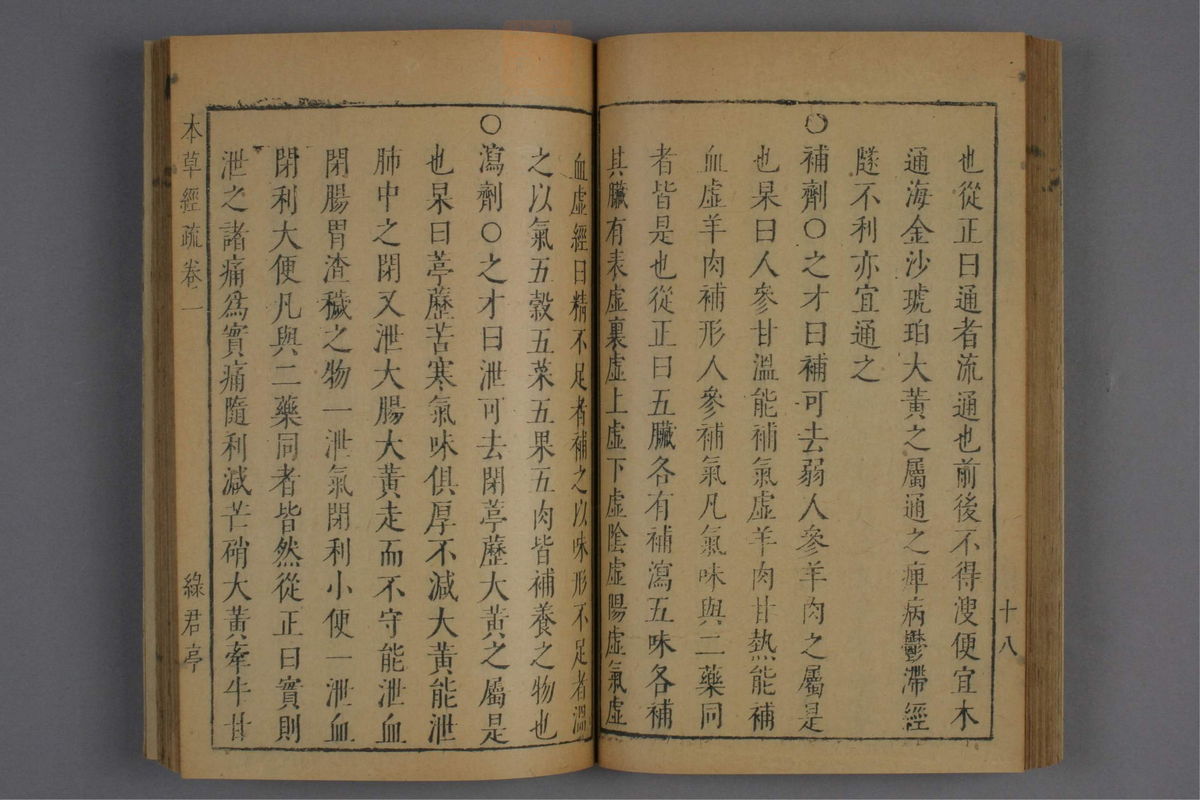 十八
也從正曰通者流通也前後不得溲便宜木
通海金沙琥珀大黃之屬通之痺病鬱滯經
隧不利亦宜通之
○補劑○之才曰補可去弱人參羊肉之屬是
也杲曰人參甘溫能補氣虛羊肉甘熱能補
血虛羊肉補形人參補氣凡氣味與二藥同
者皆是也從正曰五臟各有補瀉五味各補
其臟有表虛裏虛上虛下虛陰虛陽虛氣虛
血虛經曰精不足者補之以味形不足者溫
之以氣五穀五菜五果五肉皆補養之物也
○瀉劑○之才曰泄可去閉葶藶大黃之屬是
也杲曰葶藶苦寒氣味俱厚不減大黃能泄
肺中之閉又泄大腸大黃走而不守能泄血
閉腸胃渣穢之物一泄氣閉利小便一泄血
閉利大便凡與二藥同者皆然從正曰實則
泄之諸痛為實痛隨利減芒硝大黃牽牛甘
本草經疏卷二
綠君亭